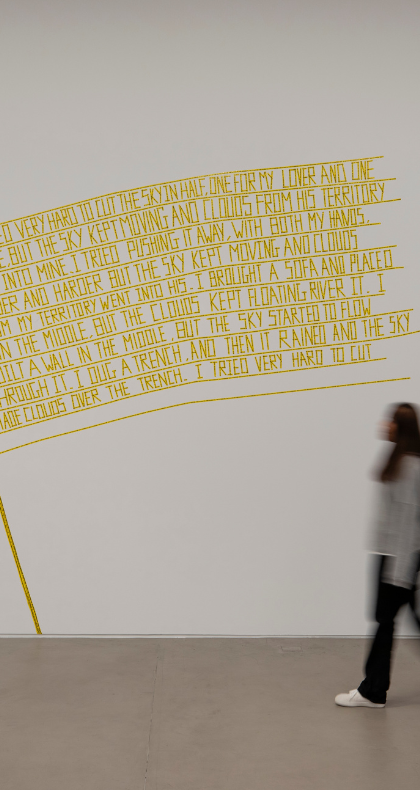 VERY HARD TO CUT THE SKY IN HALF, ONE FOR MY LOVER AND ONE
BUT THE SKY KEPT MOVING AND CLOUDS FROM HIS TERRITORY
INTO MINE. I TRIED PUSHING IT AWAY, WITH BOTH MY HANDS,
AND HARDER BUT THE SKY KEPT MOVING AND CLOUDS
MY TERRITORY WENT INTO HIS. I BROUGHT A SOFA AND PLACED
IN THE MIDDLE, BUT THE CLOUDS KEPT FLOATING RIVER IT. I
A WALL IN THE MIDDLE, BUT THE SKY STARTED TO FLOW
THROUGH IT. I DUG A TRENCH, AND THEN IT RAINED AND THE SKY
MADE CLOUDS OVER THE TRENCH. I TRIED VERY HARD TO CUT